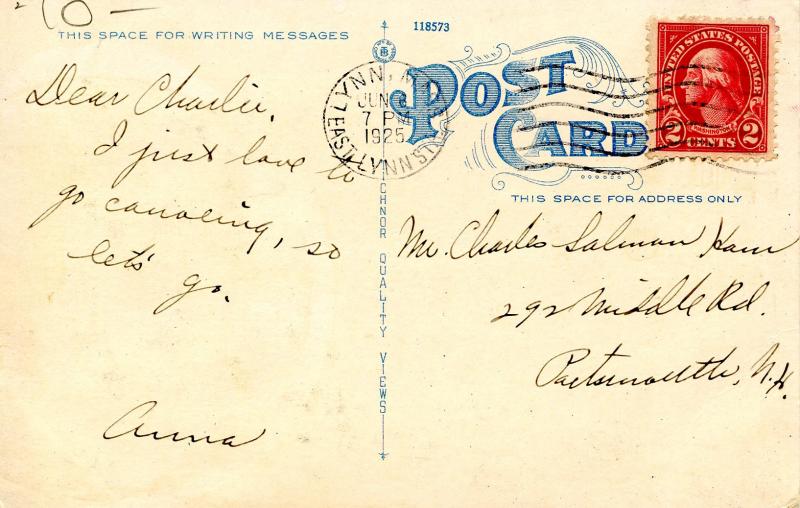 10-
118573
THIS SPACE FOR WRITING MESSAGES
Dear Charlie,
I just love to
go canoeing, so
let's go.
Anna
LYNN, MASS.
JUN
7 PM
1925
EAST LYNN STA.
TICHNOR QUALITY VIEWS
POST
CARD
UNITED STATES POSTAGE
WASHINGTON
2 CENTS 2
THIS SPACE FOR ADDRESS ONLY
Mr. Charles Salman Ham
292 Middle Rd.
Portsmouth, N.H.